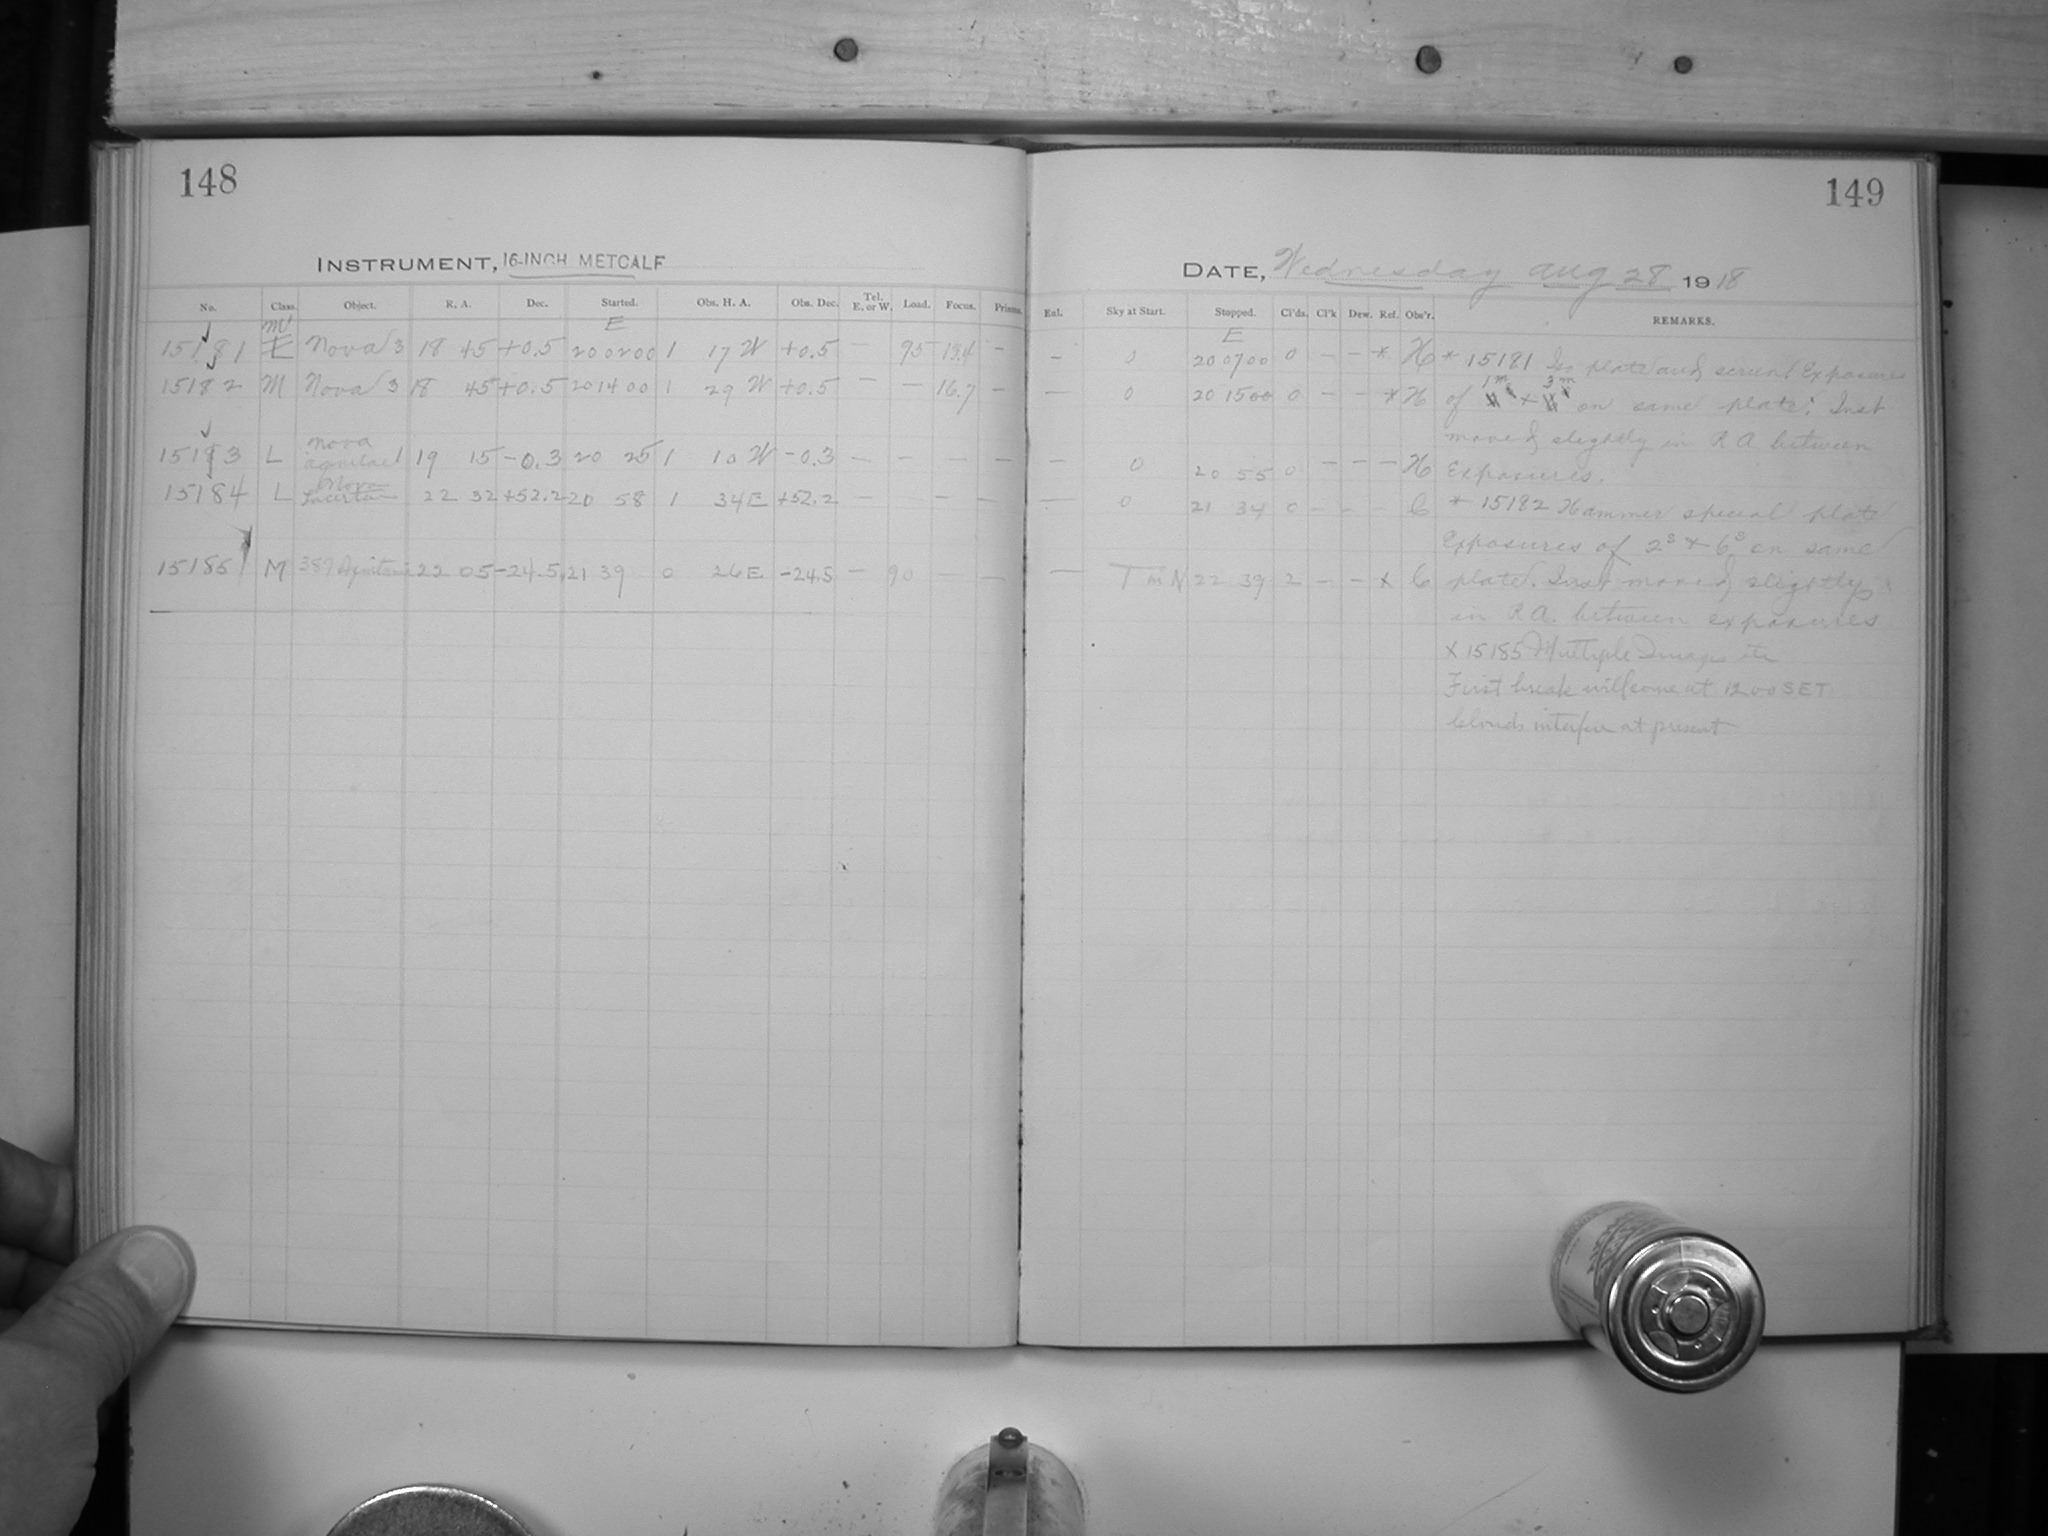 148
149
INSTRUMENT, 16-INCH METCALF
DATE, Wednesday Aug 28 1918
No. Class. Object. R. A. Dec. Started. Obs. H. A. Obs. Dec. Tel. E. or W. Load. Focus. Prisms. Eul. Sky at Start. Stopped. Cl'ds. Cl'k Dew. Ref. Obs'r. REMARKS.
E E
15181 M E Nova 3 18 45 +0.5 20 02 00 1 17 W +0.5 — 95 15.4 — — 0 20 07 00 0 — — * H * 15181 Iso plate and screen! Exposures
15182 M Nova 3 18 45 +0.5 20 14 00 1 29 W +0.5 — — 16.7 — — 0 20 15 00 0 — — * H of 1m + 3m on same plate; Inst
moved slightly in R A between
15183 L Nova Aquilae 19 15 -0.3 20 25 1 10 W -0.3 — — — — — 0 20 55 0 — — — H Exposures.
15184 L Nova Lacertae 22 32 +52.2 20 58 1 34 E +52.2 — — — — 0 21 34 0 — — — C * 15182 Hammer special plate
Exposures of 2s + 6s on same
15185 M 387 22 05 -24.5 21 39 0 26 E -24.5 — 90 — — — T in N 22 39 2 — — x C plate. Inst moved slightly
in R A. between exposures
x 15185 Multiple Images etc
First break will come at 12 00 SET
Clouds interfere at present